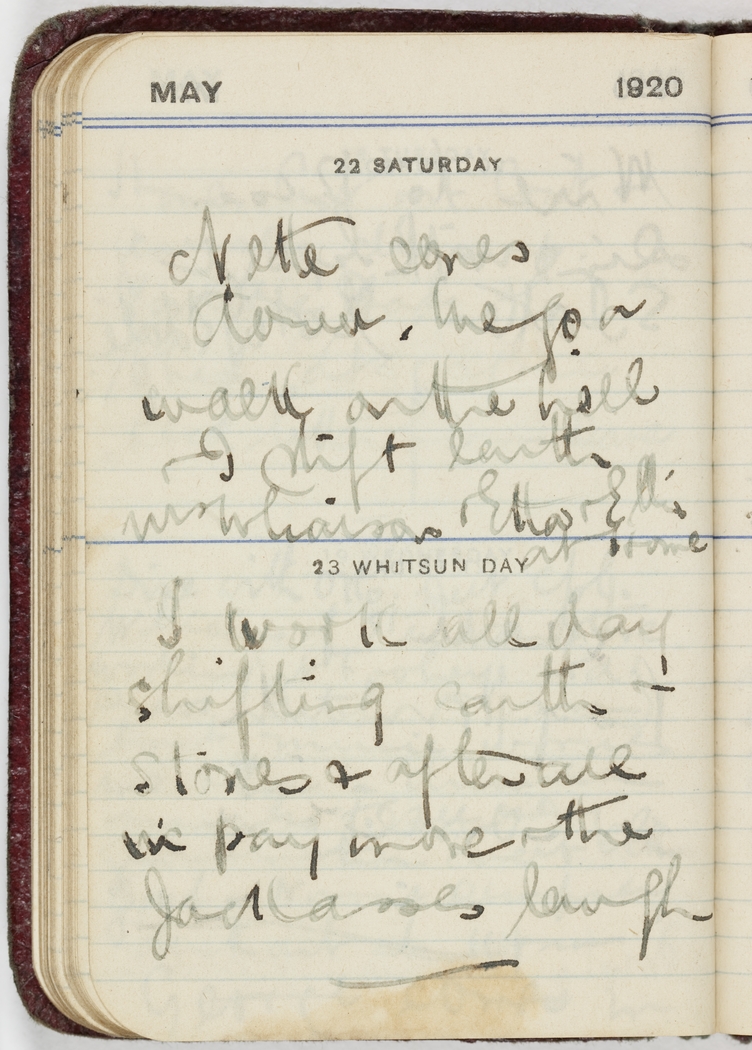 MAY 1920
22 SATURDAY
Nette comes
down, we go a
walk on the hill
I shift earth
Mrs & Ellis
at home
23 WHITSUN DAY
I work all day
shifting earth &
stones & after all
pay more the
Jackasses laugh